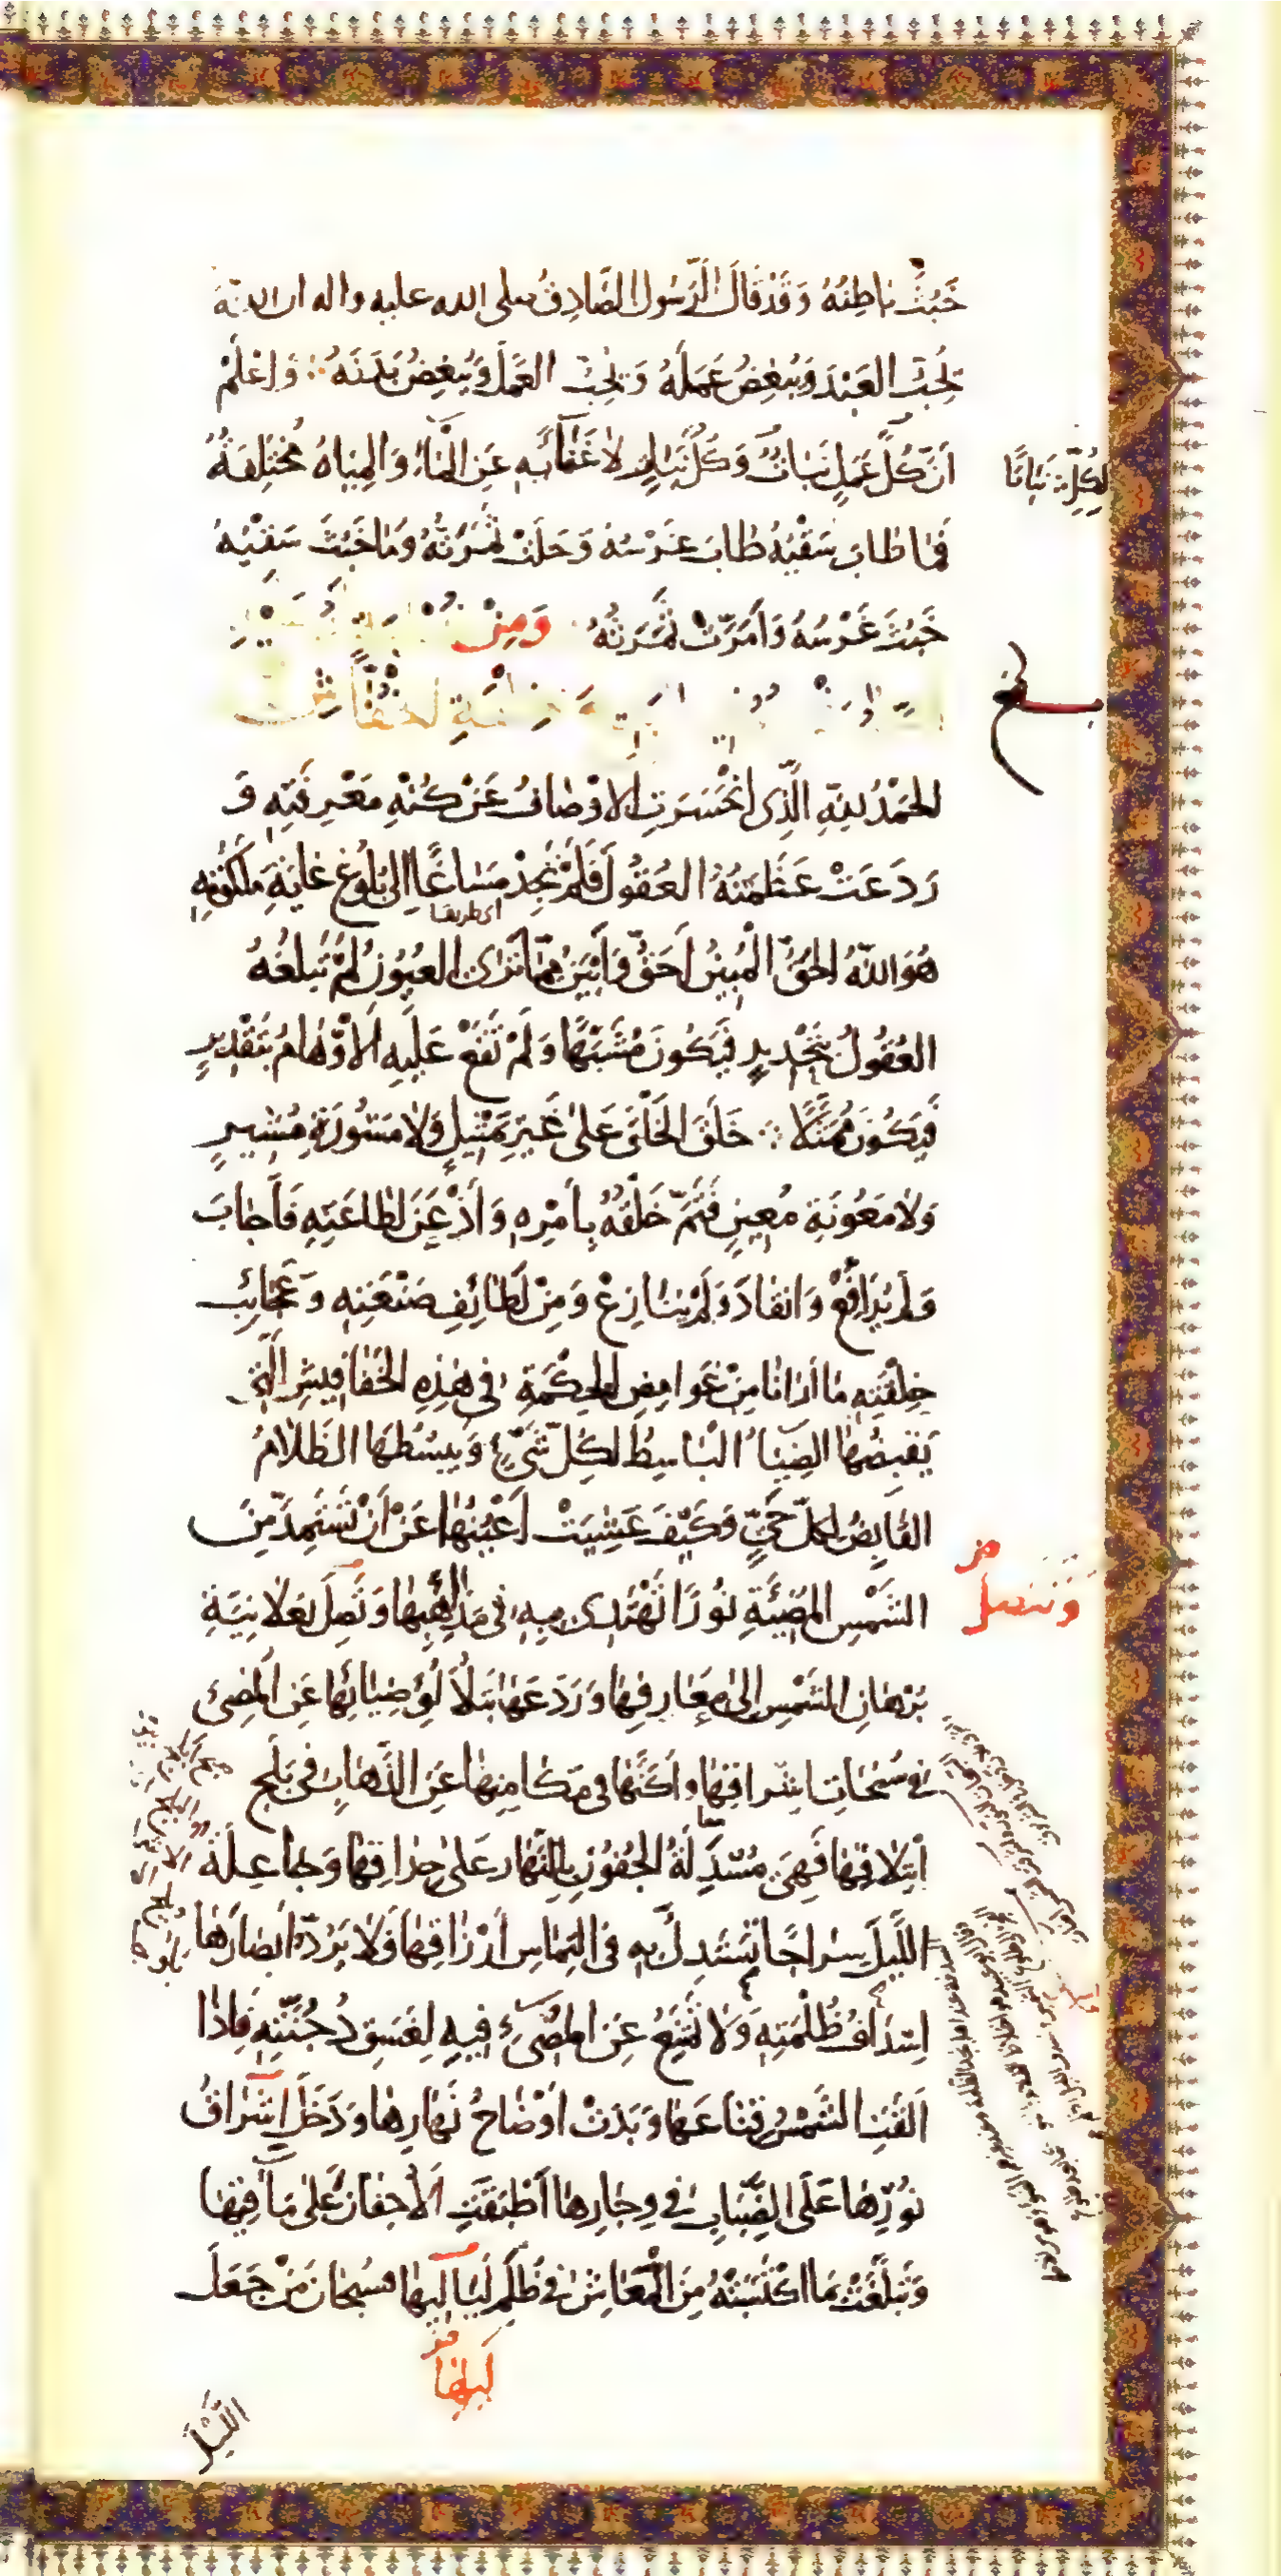 خَبُثَ بَاطِنُهُ وَقَدْ قَالَ الرَّسُولُ الصَّادِقُ صلى الله عليه واله ان الله
يُحِبُّ العَبْدَ وَيُبْغِضُ عَمَلَهُ وَيُحِبُّ العَمَلَ وَيُبْغِضُ بَدَنَهُ وَاعْلَمْ
أَنَّ كُلَّ عَمَلٍ نَبَاتٌ وَكُلُّ نَبَاتٍ لَا غِنَى بِهِ عَنِ الْمَاءِ وَالمِيَاهُ مُخْتَلِفَةٌ
لِكُلِّ نَبَاتًا
فَمَا طَابَ سَقْيُهُ طَابَ غَرْسُهُ وَحَلَتْ ثَمَرَتُهُ وَمَا خَبُثَ سَقْيُهُ
خَبُثَ غَرْسُهُ وَأَمَرَّتْ ثَمَرَتُهُ وَمِنْ
خِلْقَةِ الخُفَّاشِ
بلغ
الحَمْدُ لِلّٰهِ الَّذِى انْحَسَرَتِ الاوْصَافُ عَنْ كُنْهِ مَعْرِفَتِهِ وَ
رَدَعَتْ عَظَمَتُهُ العُقُولَ فَلَمْ تَجِدْ مَسَاغًا اِلى بُلُوغِ غَايَةِ مَلَكُوتِهِ
اى طريقا
هُوَ اللّٰهُ الحَقُّ الْمُبِينُ أَحَقُّ وَأَبْيَنُ مِمَّا تَرَى العُيُونُ لَمْ تَبْلُغْهُ
العُقُولُ بِتَحْدِيدٍ فَيَكُونَ مُشَبَّهًا وَلَمْ تَقَعْ عَلَيهِ الأَوْهَامُ بِتَقْدِيرٍ
فَيَكُونَ مُمَثَّلًا خَلَقَ الخَلْقَ عَلَى غَيْرِ تَمْثِيلٍ وَلَا مَشُورَةِ مُشِيرٍ
وَلَا مَعُونَةِ مُعِينٍ فَتَمَّ خَلْقُهُ بِأَمْرِهِ وَاَذْعَنَ لِطَاعَتِهِ فَأَجَابَ
وَلَمْ يُدَافِعْ وَانقَادَ وَلَمْ يُنَازِعْ وَمِنْ لَطَائِفِ صَنْعَتِهِ وَعَجَائِبِ
خِلْقَتِهِ مَا اَرَانَا مِنْ غَوَامِضِ الحِكْمَةِ فِى هٰذِهِ الخَفَافِيشِ الَّتِى
يَقْبِضُهَا الضِّيَاءُ الْبَاسِطُ لِكُلِّ شَىْءٍ وَيَبْسُطُهَا الظَّلَامُ
القَابِضُ لِكُلِّ حَىٍّ وَكَيْفَ عَشِيَتْ اَعْيُنُهَا عَنْ أَنْ تَسْتَمِدَّ مِنَ
الشَّمْسِ المُضِيئَةِ نُورًا تَهْتَدِى بِهِ فِى مَذَاهِبِهَا وَتَصِلَ بِعَلَانِيَةِ
وَتَتَّصِلَ
بُرْهَانِ الشَّمْسِ اِلَى مَعَارِفِهَا وَرَدَعَهَا بِتَلَأْلُؤِ ضِيَائِهَا عَنِ الْمُضِىِّ
فِى سُبُحَاتِ اشْرَاقِهَا وَاَكَنَّهَا فِى مَكَامِنِهَا عَنِ الذَّهَابِ فِى بَلَجِ
ائْتِلَاقِهَا فَهِىَ مُسْدَلَةُ الجُفُونِ بِالنَّهَارِ عَلَى حِدَاقِهَا وَجَاعِلَةُ
اللَّيْلَ سِرَاجًا تَسْتَدِلُّ بِهِ فِى الْتِمَاسِ أَرْزَاقِهَا فَلَا يَرُدُّ اَبْصَارَهَا
اِسْدَافُ ظُلْمَتِهِ وَلَا تَمْتَنِعُ عَنِ المُضِىِّ فِيهِ لِغَسَقِ دُجُنَّتِهِ فَإِذَا
اَلْقَتِ الشَّمْسُ قِنَاعَهَا وَبَدَتْ اَوْضَاحُ نَهَارِهَا وَدَخَلَ اِشْرَاقُ
نُورِهَا عَلَى الضِّبَابِ فِى وِجَارِهَا اَطْبَقَتِ الأَجْفَانَ عَلَى مَآقِيهَا
وَتَبَلَّغَتْ بِمَا اكْتَسَبَتْهُ مِنَ الْمَعَاشِ فِى ظُلَمِ لَيَالِيهَا فَسُبْحَانَ مَنْ جَعَلَ
لَيْلِهَا
اللَّيْلَ